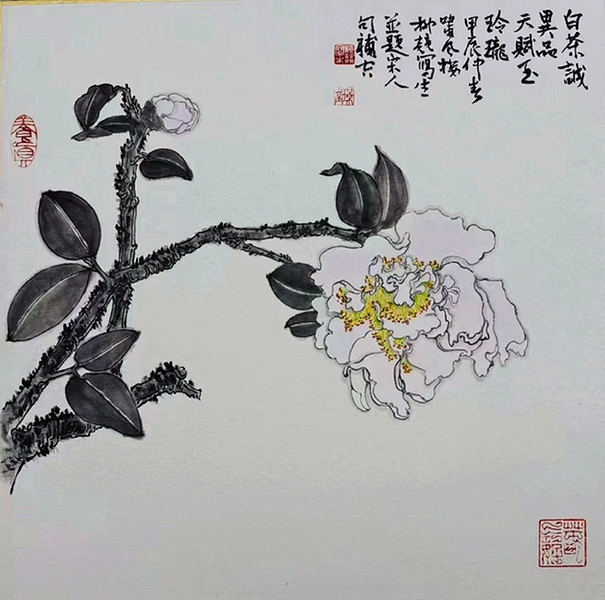 白茶誠
異品
天賦玉
玲瓏
甲辰仲春
嘯風樓
寫生
並題宋人
句補